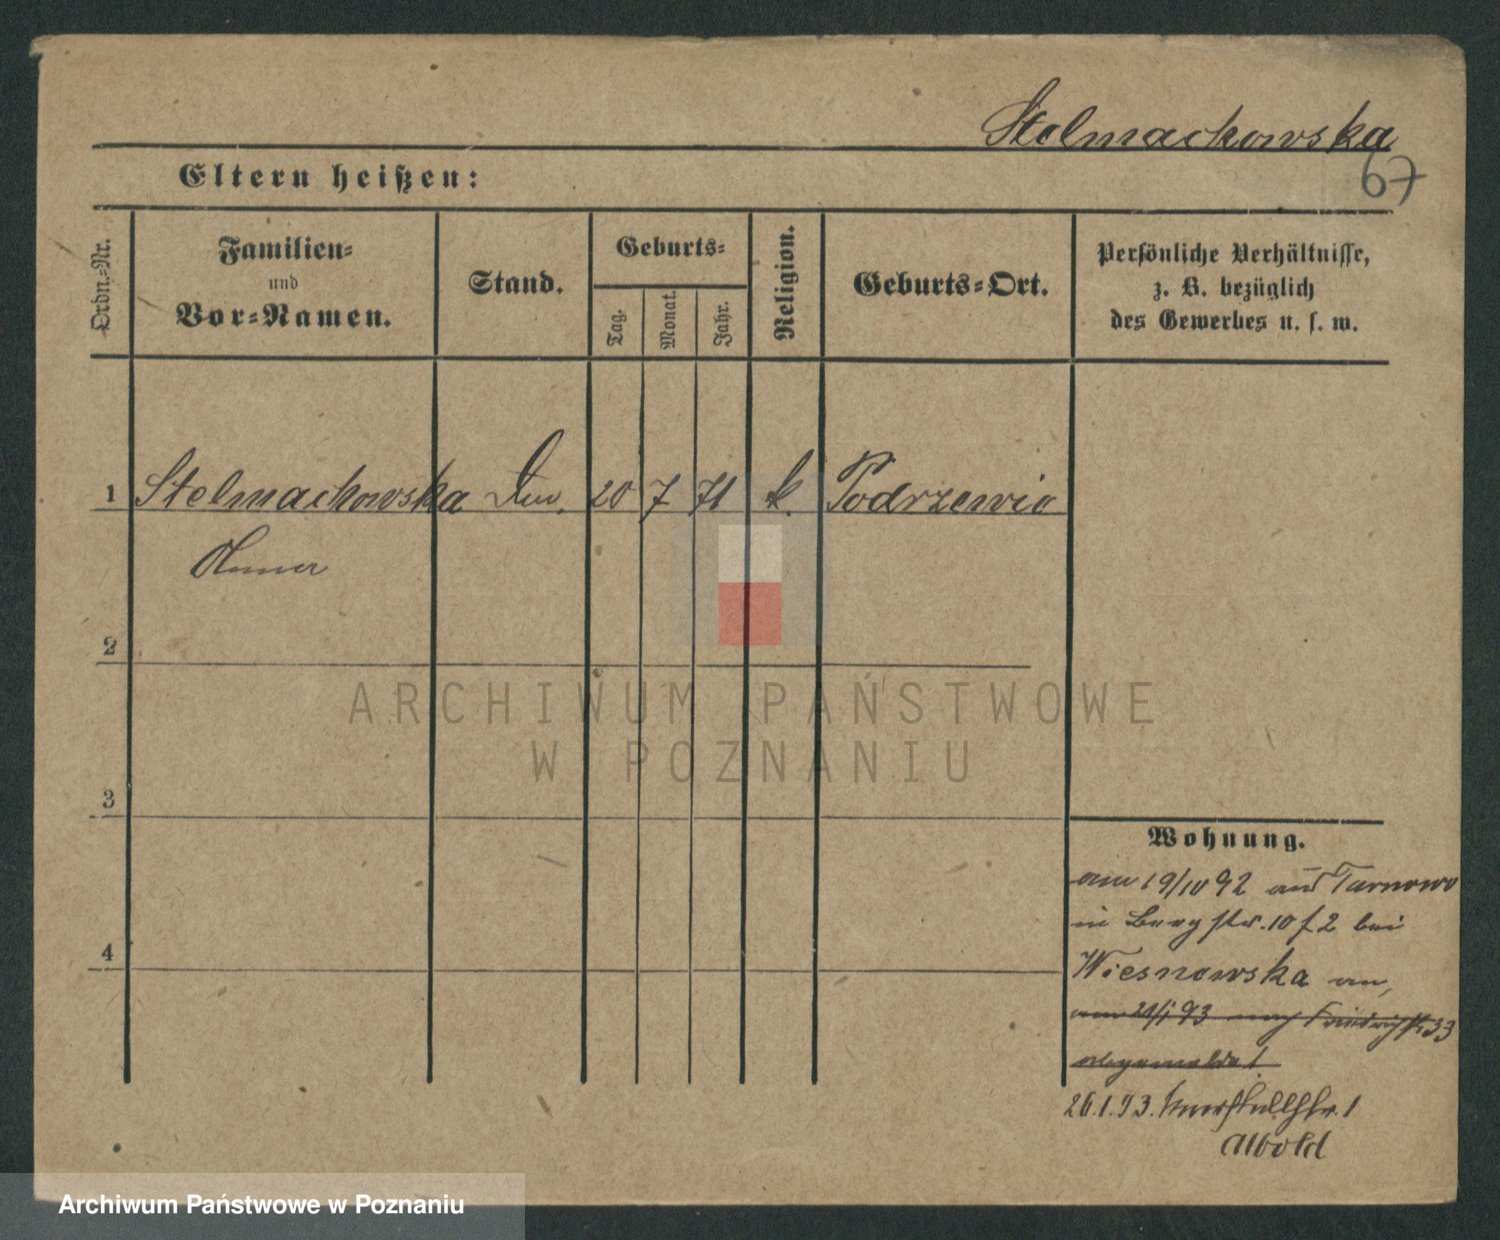 Stelmachowska
67
Eltern heißen:
Ordn.-Nr.
Familien-
und
Vor-Namen.
Stand.
Geburts-
Tag.
Monat.
Jahr.
Religion.
Geburts-Ort.
Persönliche Verhältnisse,
z. B. bezüglich
des Gewerbes u. s. w.
1 Stelmachowska 20 7 71 k. Podrzewie
2
3
4
Wohnung.
am 19/10 92 aus Tarnowo
in Bergstr. 10 f. 2 bei
Wiesnowska an,
am 21/1 93 nach Friedrichstr 33
abgemeldet
26.1.93. 1
ARCHIWUM PAŃSTWOWE
W POZNANIU
Archiwum Państwowe w Poznaniu